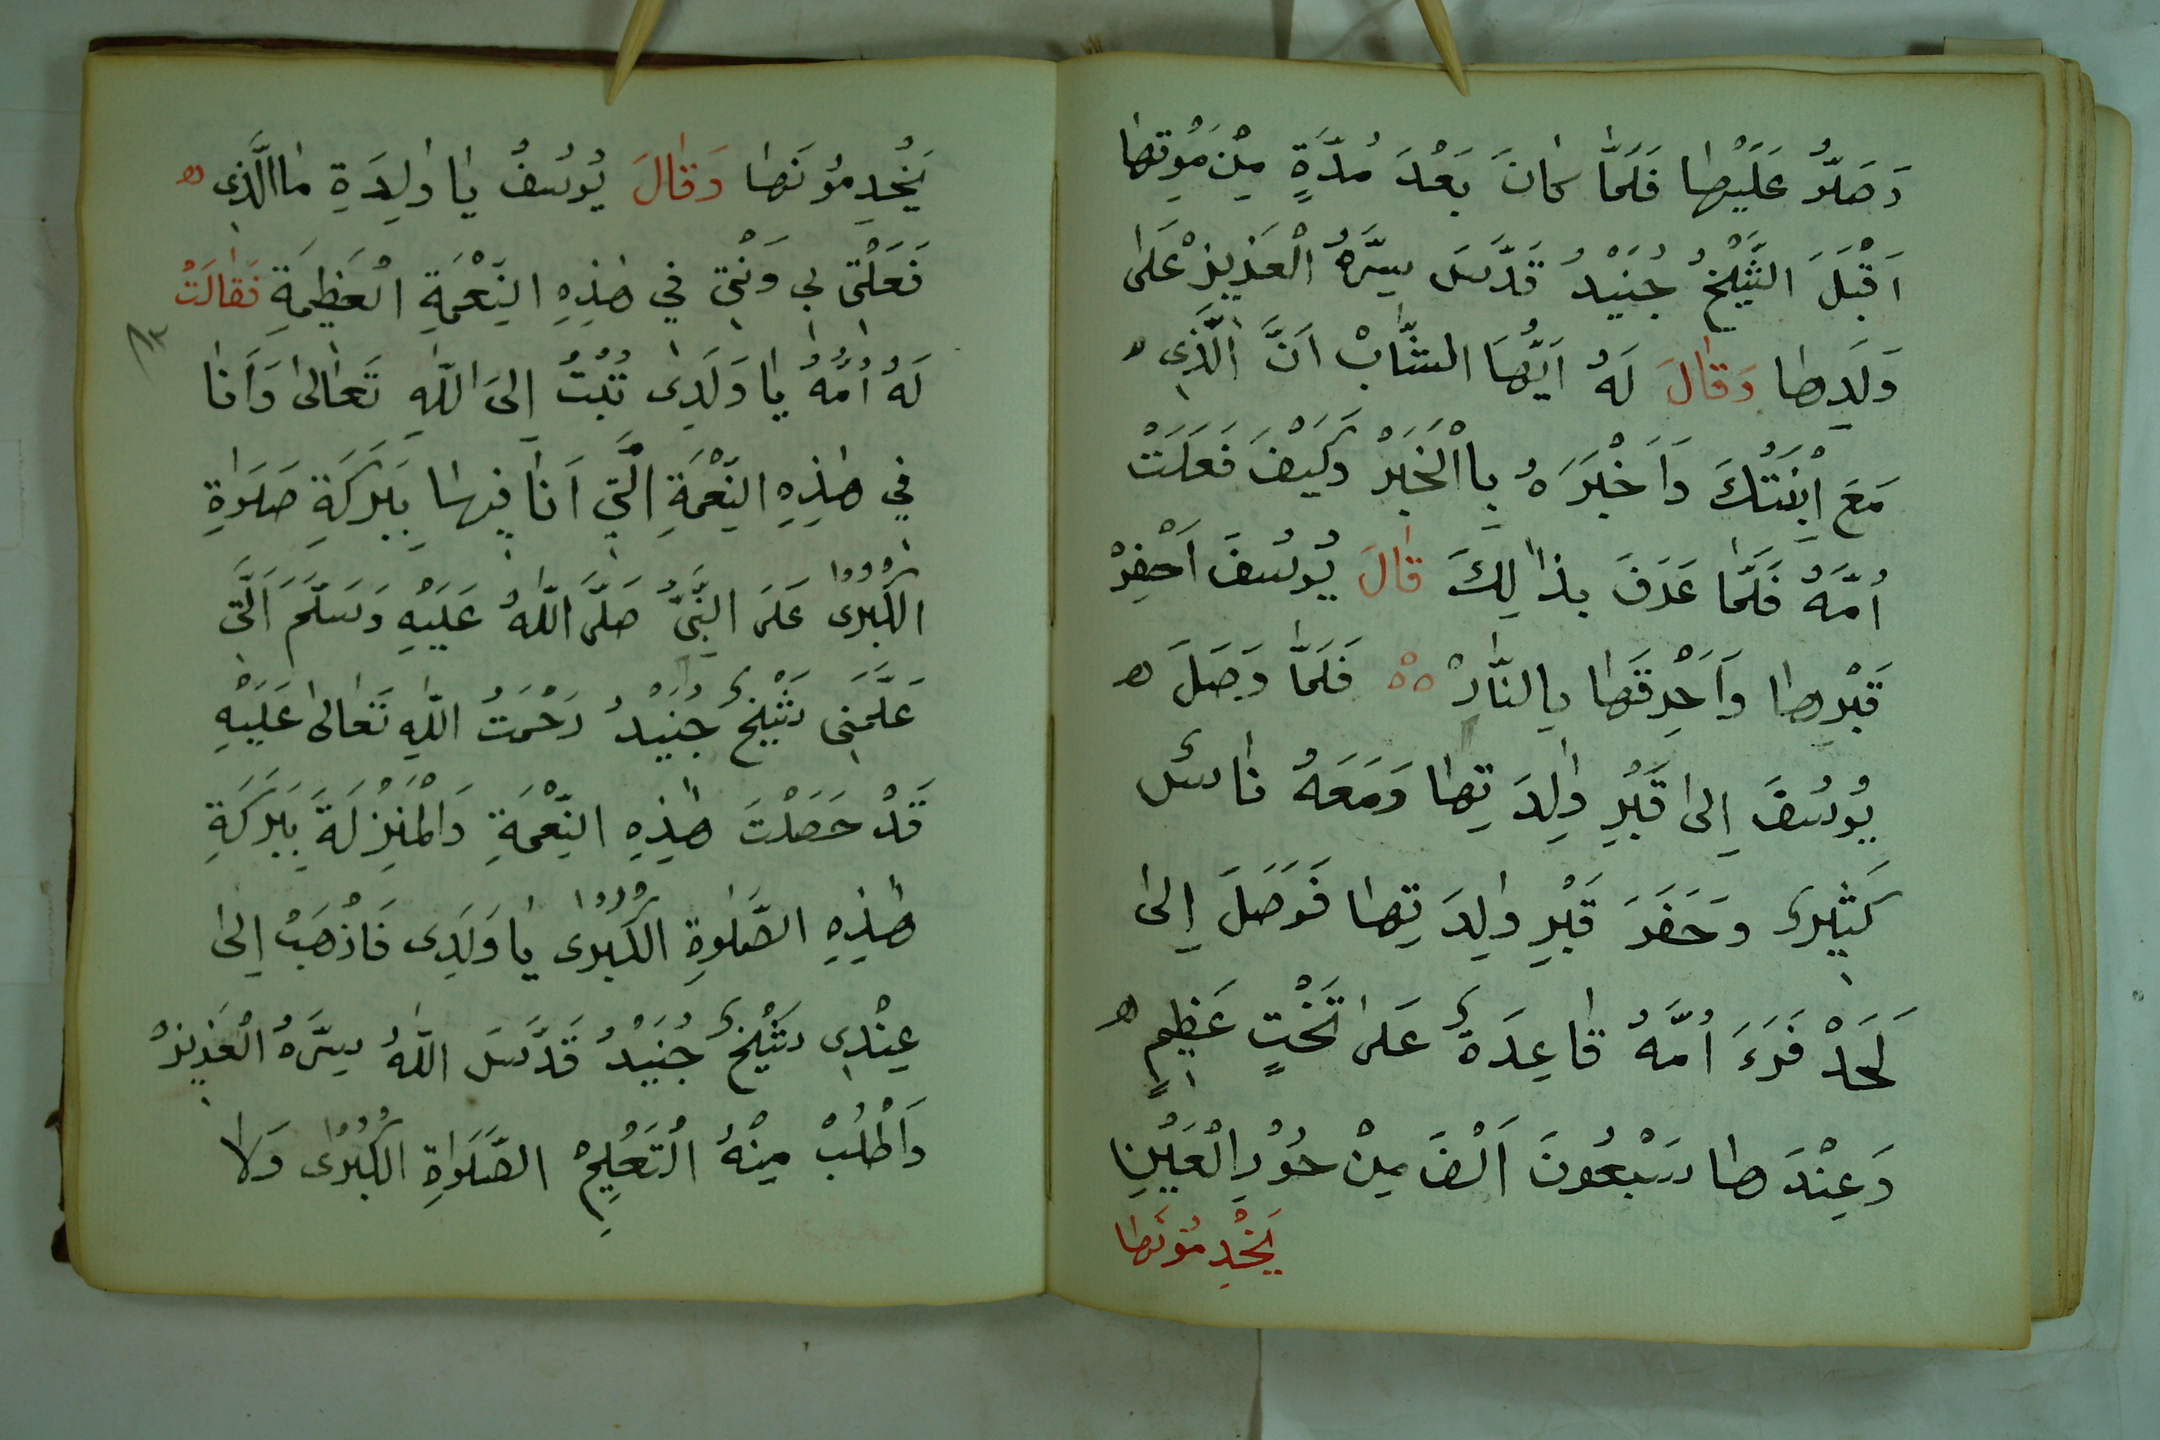 وَصَلُّو عَلَيْهٰا فَلَمّٰا كٰانَ بَعْدَ مُدَّةٍ مِنْ مَوْتِهٰا
اَقْبَلَ الشَّيْخُ جُنَيْدُ قَدَّسَ سِرَّهُ الْعَزِيزْ عَلٰى
وَلَدِهٰا وَقٰالَ لَهُ اَيُّهَا الشّٰابْ اَنَّ الَّذِي ه
مَعَ اِبْنَتُكَ وَاَخْبَرَهُ بِاالْخَبَرْ وَكَيْفَ فَعَلَتْ
اُمَّهُ فَلَمّٰا عَرَفَ بِذٰالِكَ قٰالَ يُوسُفَ اَحْفِرْ
قَبْرِهٰا وَاَحْرِقَهٰا بِالنّٰارْ ەە فَلَمّٰا وَصَلَ ه
يُوسُفَ اِلىٰ قَبْرِ وٰالِدَتِهٰا وَمَعَهُ نٰاسٌ
كَثِيرى وَحَفَرَ قَبْرِ وٰالِدَتِهٰا فَوَصَلَ اِلىٰ
لَحَدْ فَرَءَ اُمَّهُ قٰاعِدَةٌ عَلىٰ تَخْتٍ عَظِيمٍ ه
وَعِنْدَهٰا سَبْعُونَ اَلْفَ مِنْ حُوْرِالْعَيْنِ
يَخْدِمُونَهٰا
يَخْدِمُونَهٰا وَقٰالَ يُوسُفُ يٰا وٰلِدَةِ مٰاالَّذِي ه
فَعَلْتِي بِي وَنْتِي فِي هٰذِهِ النِّعْمَةِ الْعَظِيمَةِ فَقٰالَتْ
لَهُ اُمُّهُ يٰا وَلَدِى تُبْتُ اِلىَ اللّٰهِ تَعٰالىٰ وَاَنٰا
فِي هٰذِهِ النِّعْمَةِ الَّتِي اَنٰا فِيهٰا بِبَرَكَةِ صَلَوٰةِ
الْكُبْرٰى عَلَى النَّبِيِّ صَلَّى اللّٰهُ عَلَيْهِ وَسَلَّمَ اَلَّتِي
عَلَّمَنِي شَيْخُ جُنَيْدُ رَحْمَتُ اللّٰهِ تَعٰالىٰ عَلَيْهِ
قَدْ حَصَلْتَ هٰذِهِ النِّعْمَةِ وَالْمَنْزِلَةَ بِبَرَكَةِ
هٰذِهِ الصَّلٰوةِ الْكُبْرٰى يٰا وَلَدِى فَاذْهَبْ اِلىٰ
عِنْدِى شَيْخُ جُنَيْدُ قَدَّسَ اللّٰهُ سِرَّهُ الْعَزِيزْ
وَاَطْلُبْ مِنْهُ الْتَعْلِيمْ الصَّلَوٰةِ الْكُبْرٰى وَلٰا